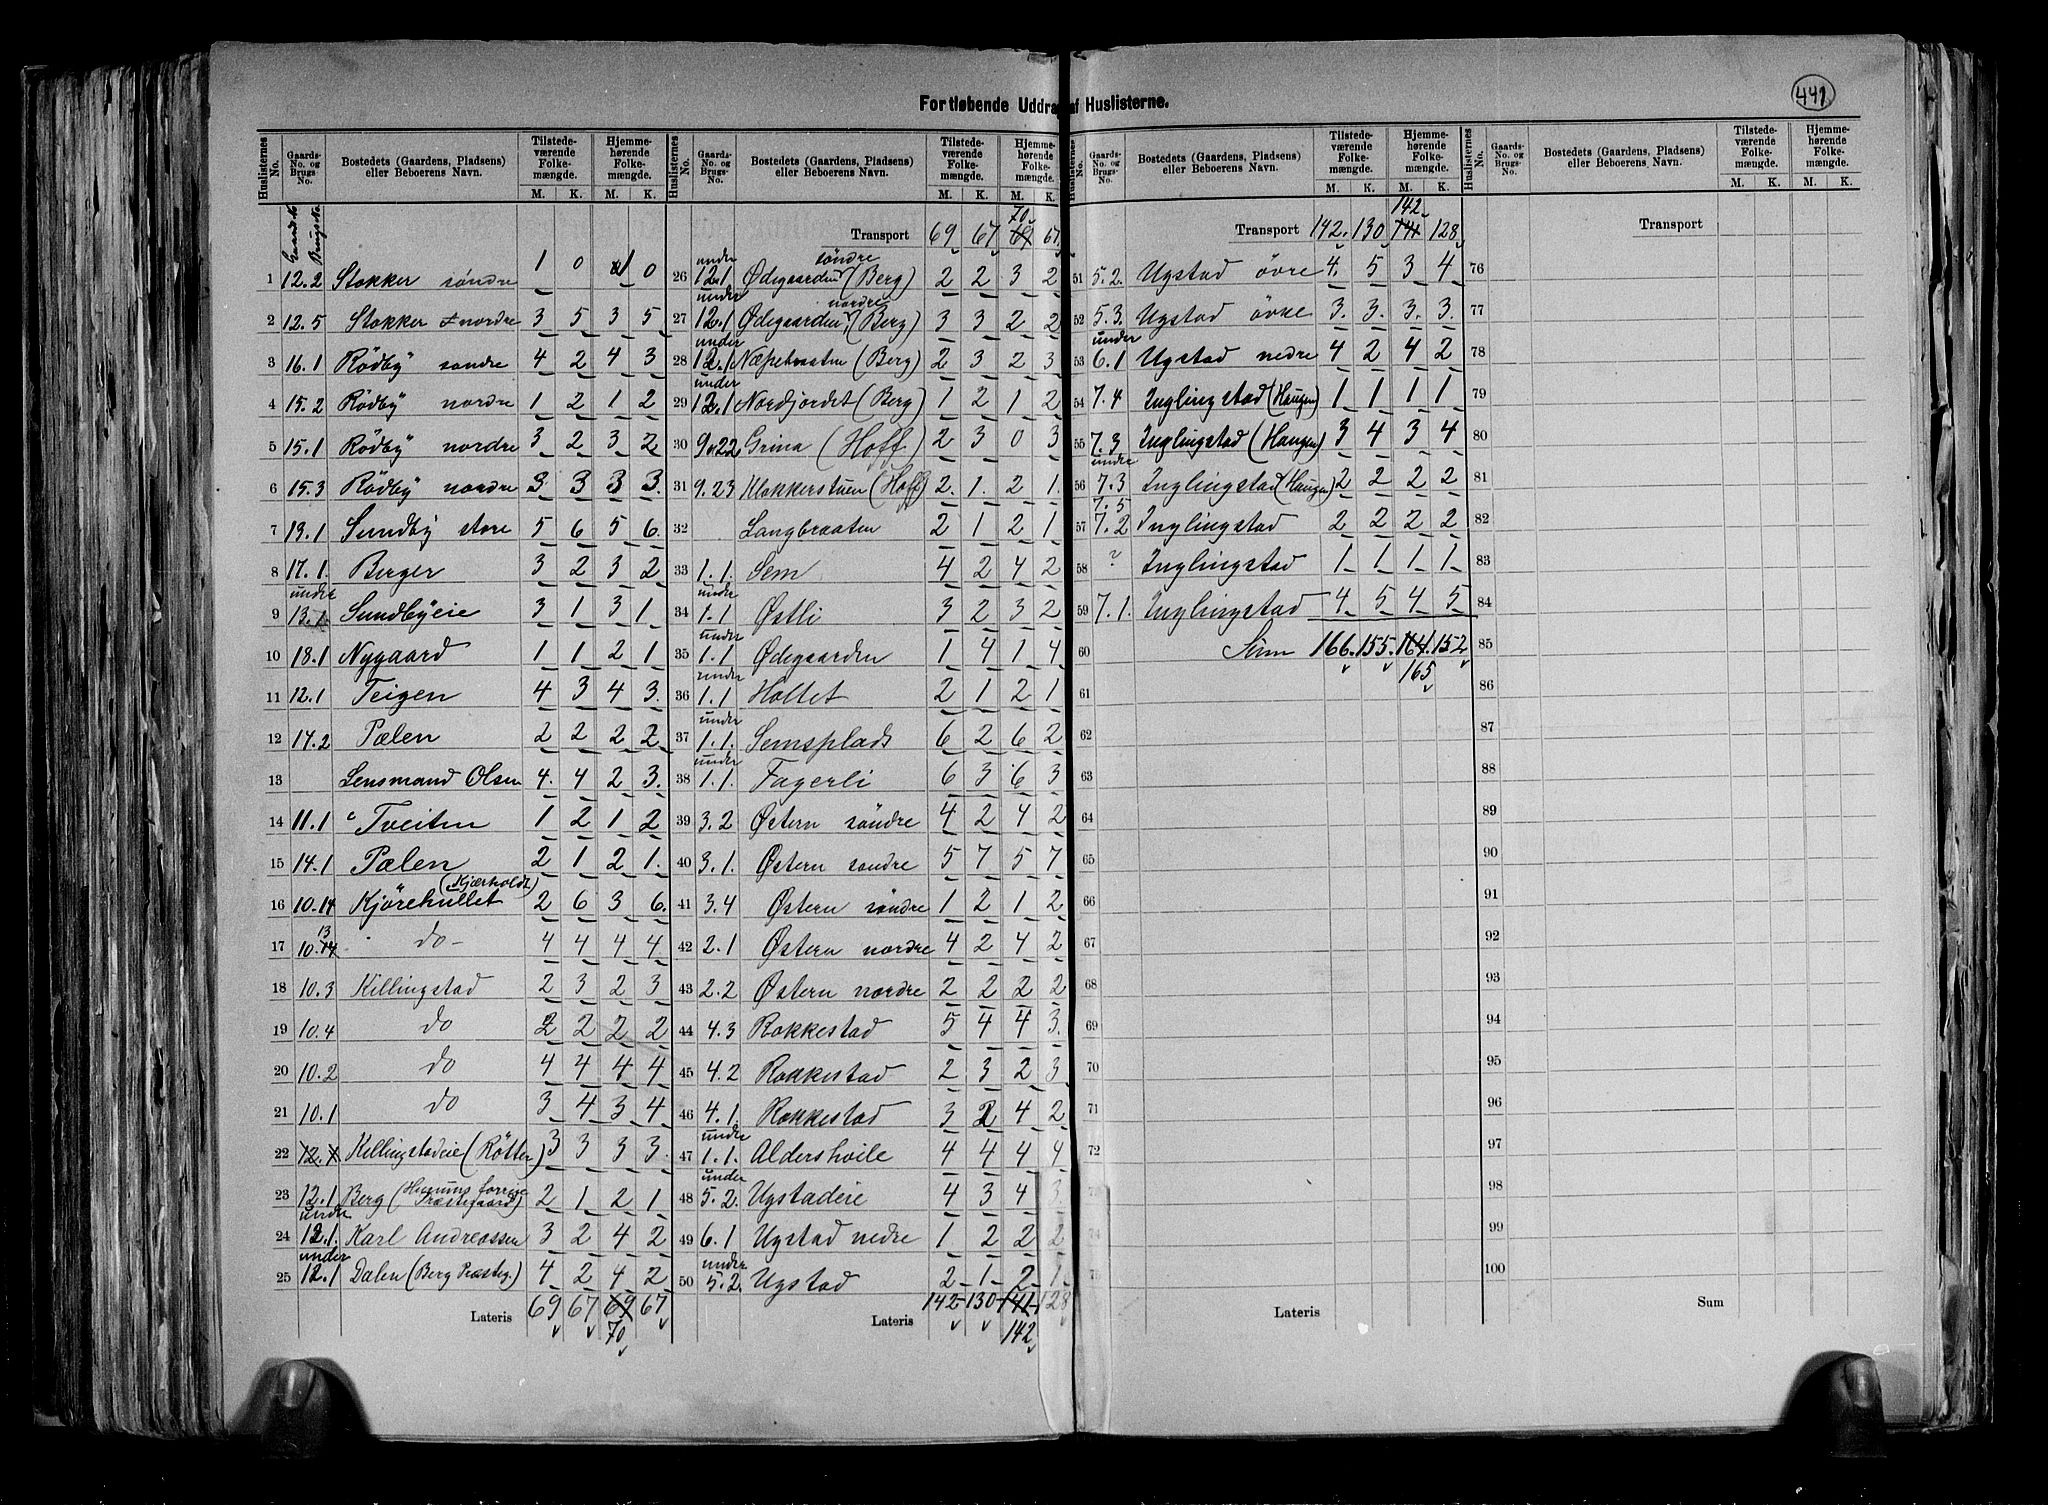 441
Fortløbende Uddrag af Huslisterne.
Huslisternes No. | Gaards-No. og Brugs-No. | Bostedets (Gaardens, Pladsens) eller Beboerens Navn. | Tilstedeværende Folkemængde. M. K. | Hjemmehørende Folkemængde. M. K.
Gaards No Brugs No.
1 12.2 Stokker søndre 1 0 1 0
2 12.5 Stokker nordre 3 5 3 5
3 16.1 Rödby søndre 4 2 4 3
4 15.2 Rödby nordre 1 2 1 2
5 15.1 Rödby nordre 3 2 3 2
6 15.3 Rödby nordre 3 3 3 3
7 13.1 Sundby store 5 6 5 6
8 17.1. Berger 3 2 3 2
9 under 13.1. Sundbyeie 3 1 3 1
10 18.1 Nygaard 1 1 2 1
11 12.1 Teigen 4 3 4 3
12 14.2 Pælen 2 2 2 2
13 Lensmand Olsen 4 4 2 3
14 11.1 Tveiten 1 2 1 2
15 14.1 Pælen 2 1 2 1
16 10.14 Kjörehullet (Kjærholdt) 2 6 3 6
17 10.13 do 4 4 4 4
18 10.3 Killingstad 2 3 2 3
19 10.4 do 2 2 2 2
20 10.2 do 4 4 4 4
21 10.1 do 3 4 3 4
22 Killingstadeie (Røtter) 3 3 3 3
23 12.1 Berg (Hurums forrige Præstegaard) 2 1 2 1
24 under 12.1. Karl Andreassen 3 2 4 2
25 under 12.1 Dalen (Berg Præsteg.) 4 2 4 2
Lateris 69 67 69 67
70
Transport 69 67 69 67
70
26 under 12.1 Ødegaarden søndre (Berg) 2 2 3 2
27 under 12.1 Ødegaarden nordre (Berg) 3 3 2 2
28 under 12.1 Næpebraaten (Berg) 2 3 2 3
29 under 12.1 Nordjordet (Berg) 1 2 1 2
30 9.22 Grina (Hoff) 2 3 0 3
31 9.23 Klokkerstuen (Hoff) 2 1 2 1
32 Langbraaten 2 1 2 1
33 1.1. Sem 4 2 4 2
34 under 1.1 Østli 3 2 3 2
35 under 1.1 Ødegaarden 1 4 1 4
36 under 1.1 Holtet 2 1 2 1
37 under 1.1. Semsplads 6 2 6 2
38 under 1.1. Fagerli 6 3 6 3
39 3.2 Østern søndre 4 2 4 2
40 3.1. Østern søndre 5 7 5 7
41 3.4 Østern søndre 1 2 1 2
42 2.1 Østern nordre 4 2 4 2
43 2.2 Østern nordre 2 2 2 2
44 4.3 Rokkestad 5 4 4 3
45 4.2 Rokkestad 2 3 2 3
46 4.1. Rokkestad 3 2 4 2
47 under 1.1. Aldershvile 4 4 4 4
48 under 5.2. Ugstadeie 4 3 4 3
49 6.1 Ugstad nedre 1 2 2 2
50 under 5.2. Ugstad 2 1 2 1
Lateris 142 130 141 128
142
Huslisternes No. | Gaards-No. og Brugs-No. | Bostedets (Gaardens, Pladsens) eller Beboerens Navn. | Tilstedeværende Folkemængde. M. K. | Hjemmehørende Folkemængde. M. K.
Transport 142 130 141 128
142
51 5.2. Ugstad övre 4 5 3 4
52 5.3. Ugstad övre 3 3 3 3
53 under 6.1 Ugstad nedre 4 2 4 2
54 7.4 Inglingstad (Haugen) 1 1 1 1
55 7.3 Inglingstad (Haugen) 3 4 3 4
56 under 7.3 Inglingstad (Haugen) 2 2 2 2
57 7.5 7.2 Inglingstad 2 2 2 2
58 ? Inglingstad 1 1 1 1
59 7.1. Inglingstad 4 5 4 5
60 Sum 166 155 164 152
165
61
62
63
64
65
66
67
68
69
70
71
72
73
74
75
Lateris
Transport
76
77
78
79
80
81
82
83
84
85
86
87
88
89
90
91
92
93
94
95
96
97
98
99
100
Sum